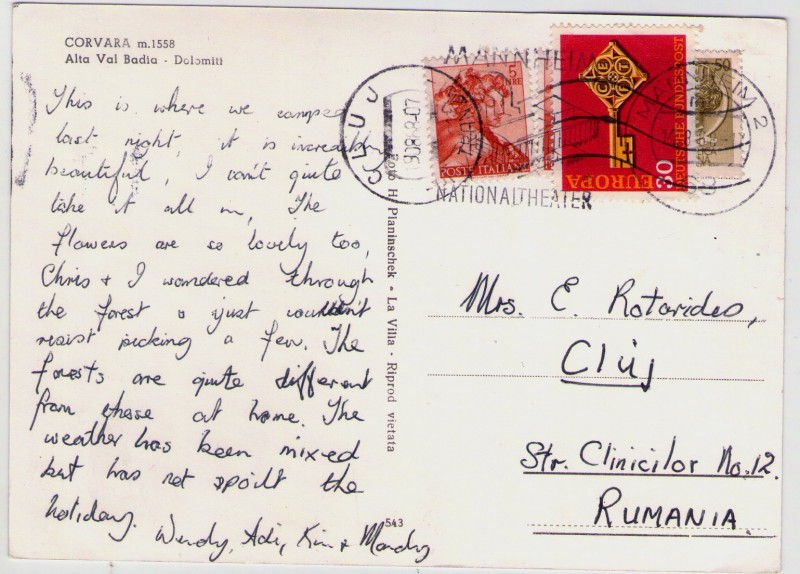 CORVARA m.1558
Alta Val Badia - Dolomiti
This is where we camped
last night, it is incredibly
beautiful, I can't quite
take it all in, The
flowers are so lovely too,
Chris + I wandered through
the forest & just couldn't
resist picking a few. The
forests are quite different
from those at home. The
weather has been mixed
but has not spoilt the
holiday. Wendy, Adi, Kim + Mandy
543
Foto H. Planinschek • La Villa - Riprod vietata
CLUJ
5
LIRE
POSTE ITALIANE
MANNHEIM
NATIONALTHEATER
CEPT
EUROPA
30
DEUTSCHE BUNDESPOST
50
MANNHEIM 2
Mrs. E. Rotarides,
Cluj
Str. Clinicilor No.12.
RUMANIA.